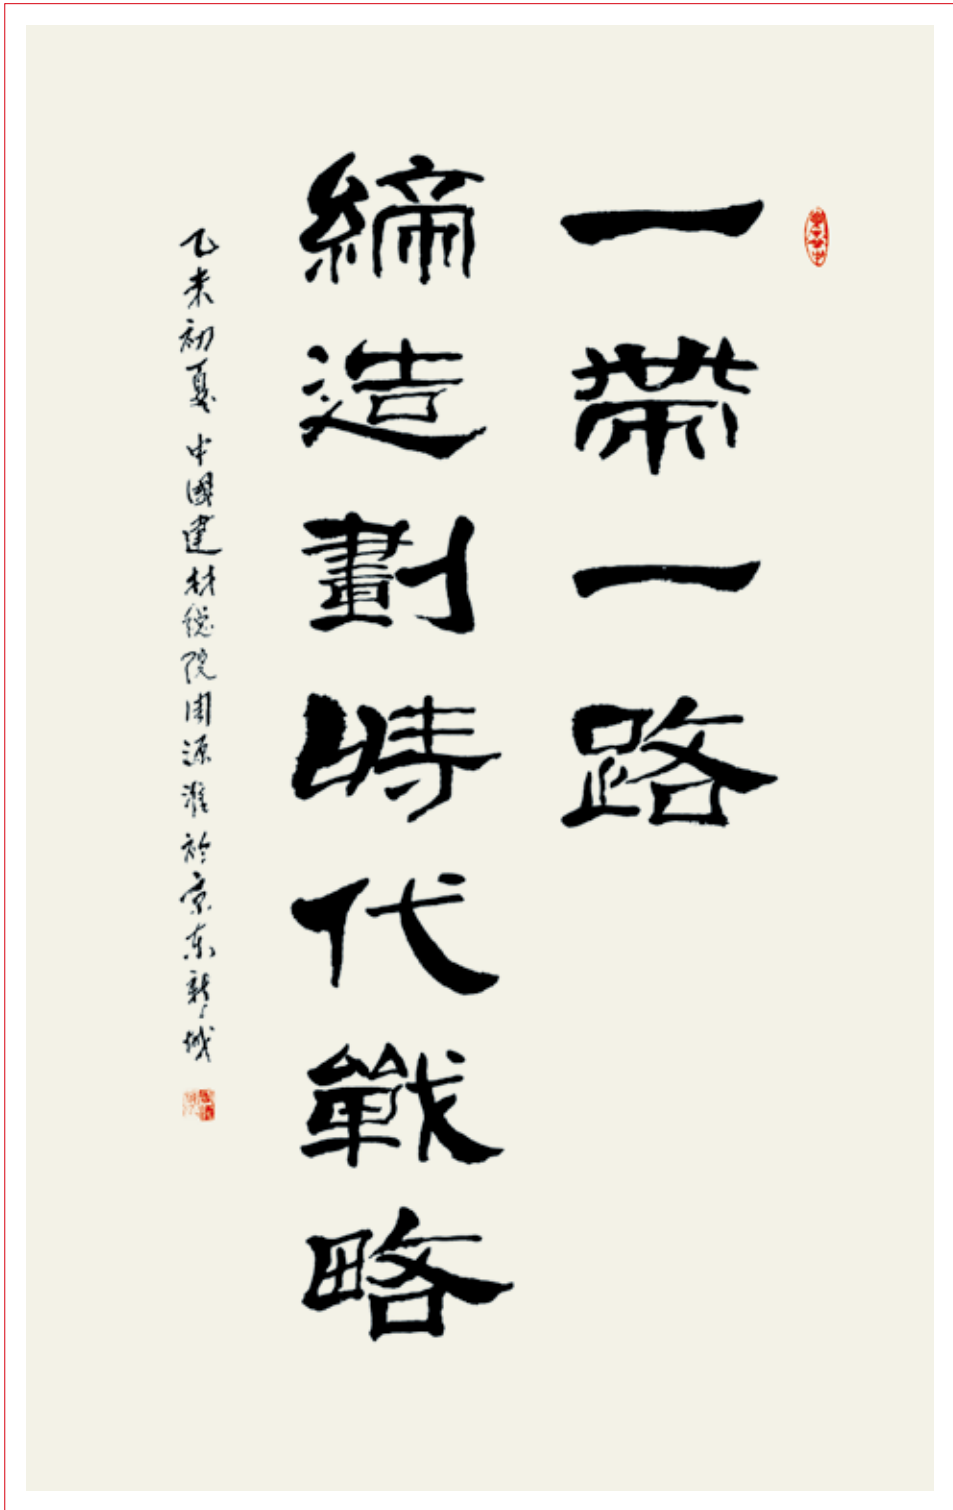 一帶一路
締造劃時代戰略
乙未初夏中國建材總院周源濰於京東新城